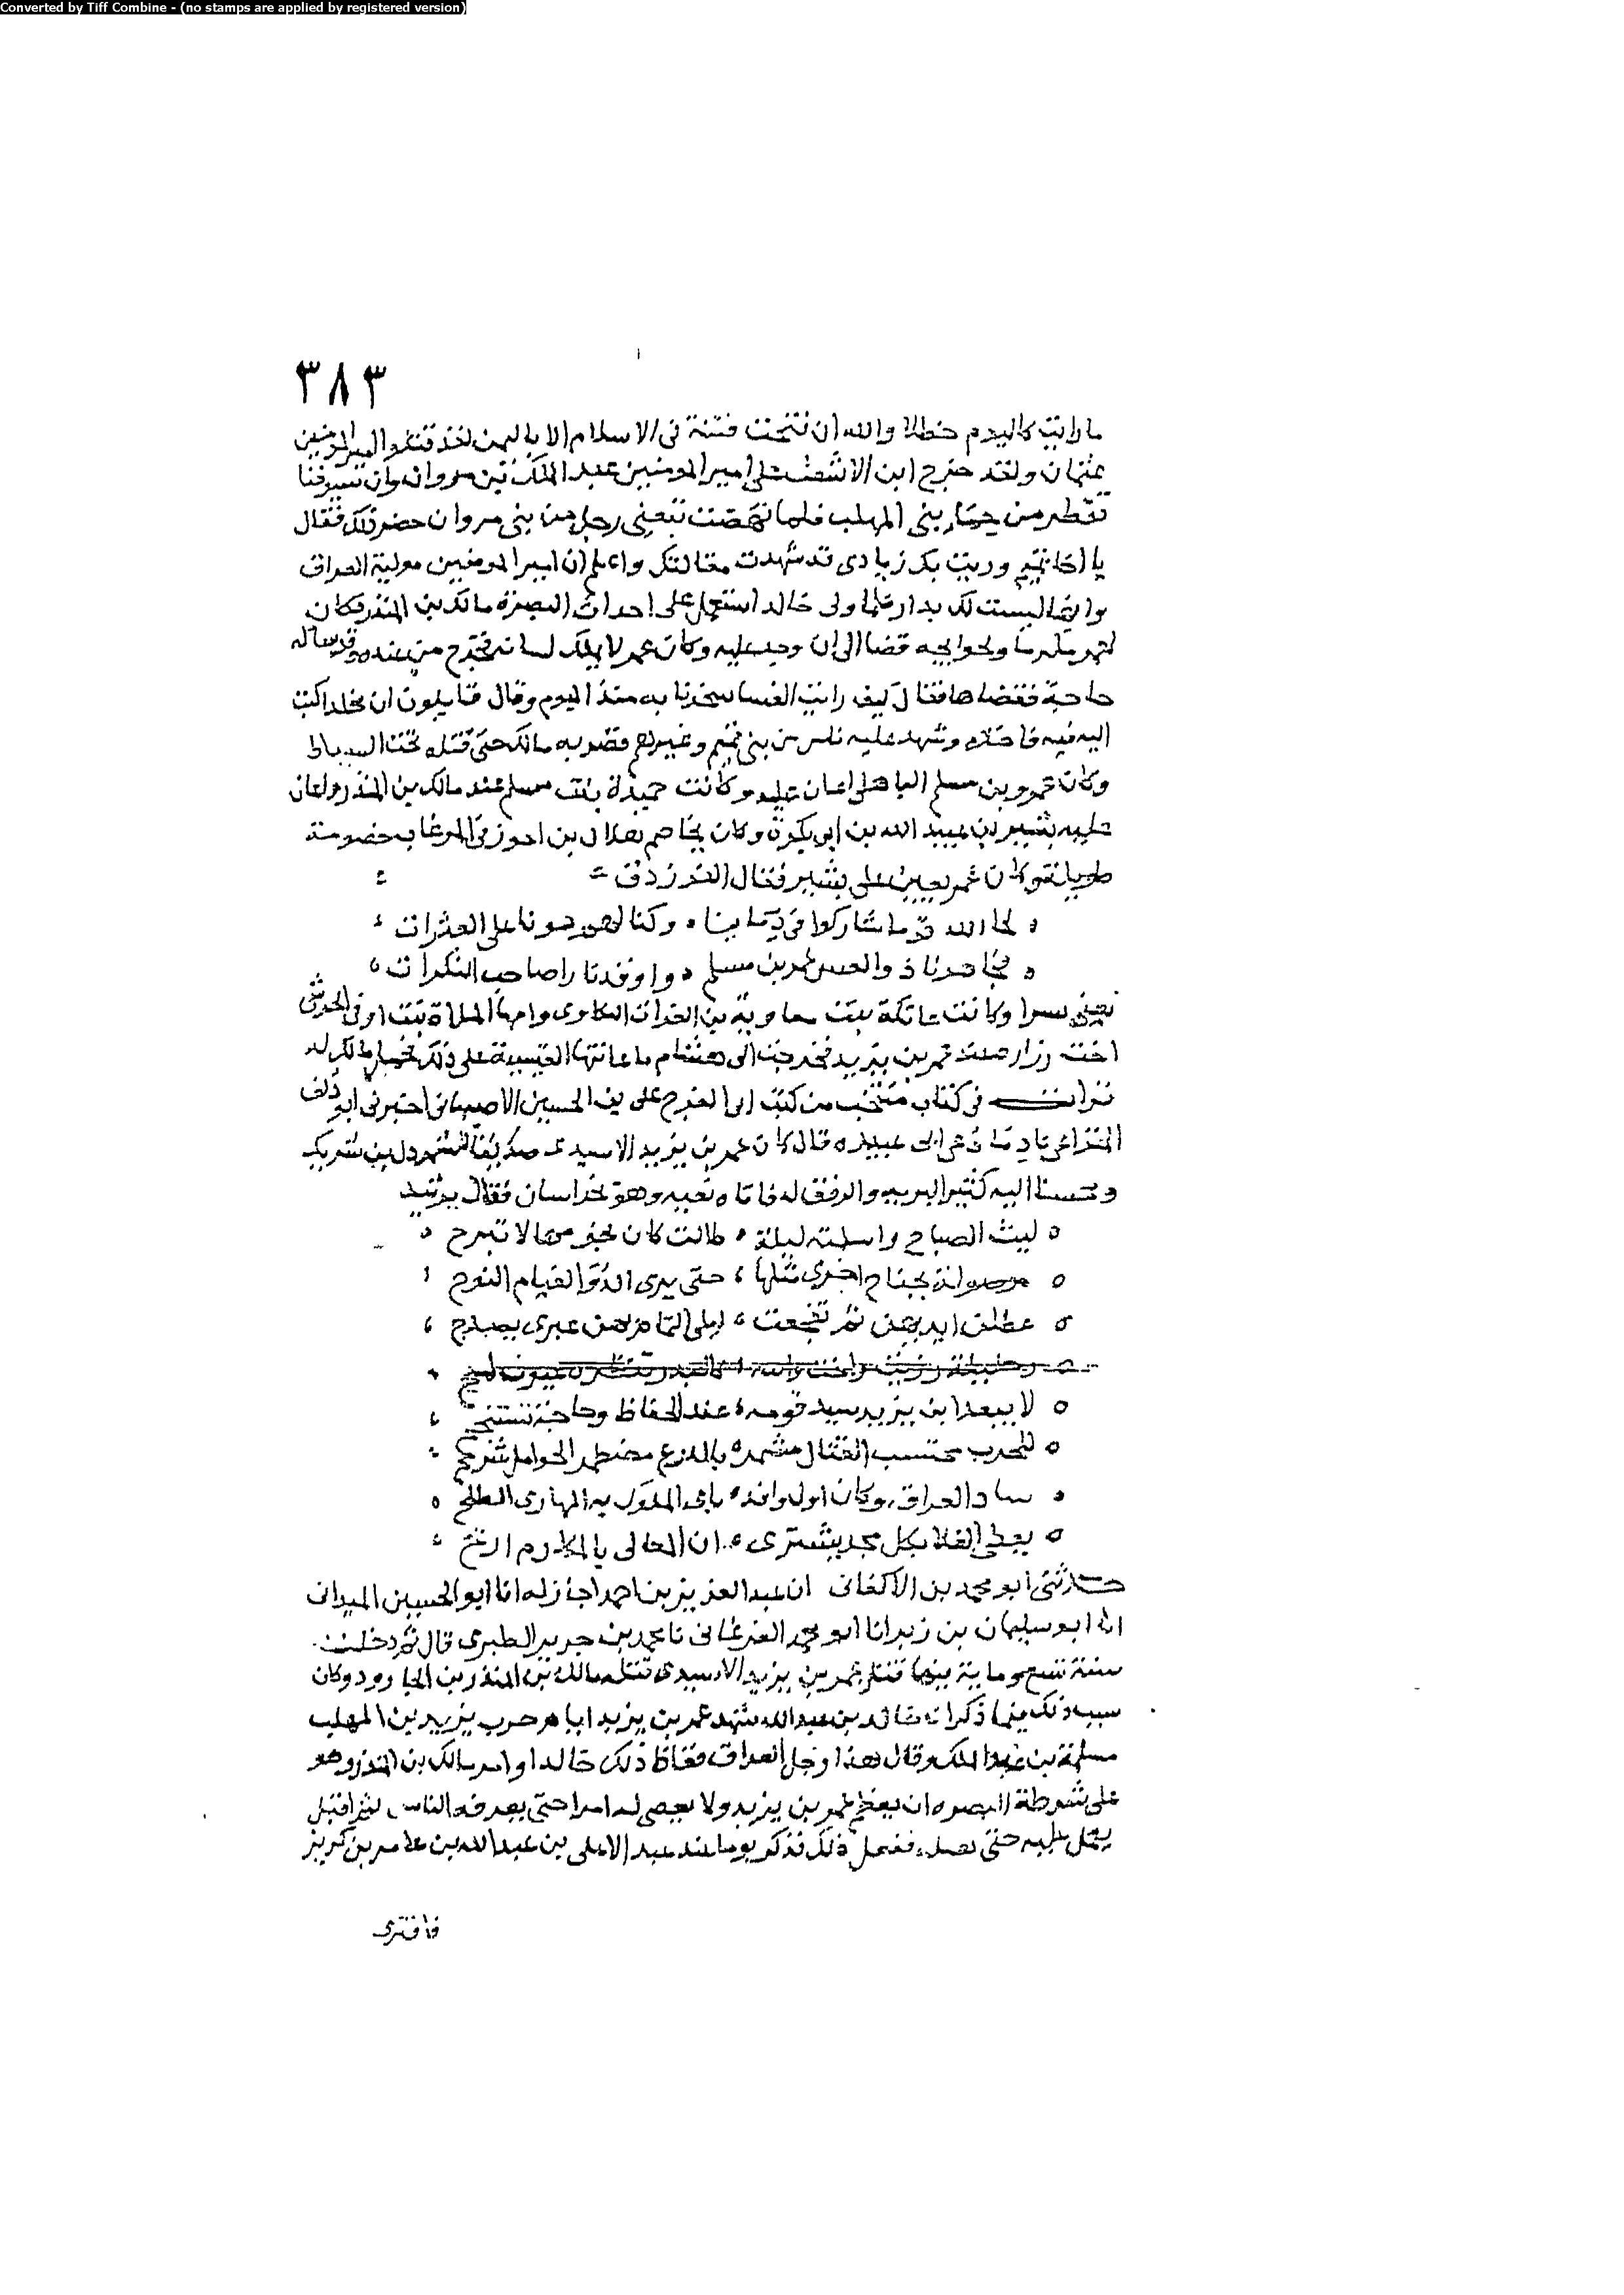 Converted by Tiff Combine - (no stamps are applied by registered version)
٣٨٣
ما رايت كاليوم خطلا والله إن فتحت فتنة في الاسلام إلا باليمن لقد قتلوا امير المومنين
عثمان ولقد خرج ابن الاشعث على امير المومنين عبد الملك بن مروان وان سيوفنا
تقطر من دماء بني المهلب فلما نهضت تبعني رجل من بني مروان حضر ذلك فقال
يا اخا تميم وريت بك زنادي قد شهدت مقالتك واعلم أن امير المومنين مولية العراق
وانها ليست لك بدار فلما ولي خالد استعمل على احداث البصرة مالك بن المنذر فكان
لعمر مكرما ولحوايجه قضا الى ان وجد عليه وكان عمر لا يملك لسانه فخرج من عنده وقد ساله
حاجة فقضاها فقال كيف رايت الفسا سخرنا به منذ اليوم وقال قايلون ان خالدا كتب
اليه فيه فاخذه وشهد عليه ناس من بني تميم وغيرهم فضربه مالك حتى قتله تحت السياط
وكان عمرو بن مسلم الباهلي اعان عليه وكانت حميدة بنت مسلم عند مالك بن المنذر واعان
عليه بشير بن عبيد الله بن ابي بكرة وكان يخاصم هلال بن احوز في المرغاب خصومة
طويلة وكان عمر يعين على بشير فقال الفرزدق
لحا الله قوما شاركوا في دماينا وكنا لهم عونا على العثرات
فجاهرنا ذو الغس عمر بن مسلم واوقد نارا صاحب البكرات
يعني بشيرا وكانت عاتكة بنت معاوية بن الفرات البكاوى وامها الملاة بنت اوفى الحرشي
اخت زرارة عند عمر بن يزيد فخرجت الى هشام فاعانتها القيسية على ذلك فحمل مالك له
قرات في كتاب منتخب من كتب ابي الفرج علي بن الحسين الاصبهاني اخبرني ابو دلف
الخزاعي نا دماذ عن ابي عبيده قال كان عمر بن يزيد الاسيدي صديقا لشمردل بن شريك
ومحسنا اليه كثير البر به والرفق له فاتاه نعيه وهو بخراسان فقال يرثيه
لبث الصباح واسلمته ليلة طالت كان نجومها لا تبرح
موصولة بجناح اخرى مثلها حتى يرى الدو القيام النوح
عطلن ايديهن ثم تفجعت ليل التمام بهن عبرى يصدح
وحليلة رزيت واخت وابنه كالبدر تنظره عيون لمح
لا يبعد ابن يزيد سيد قومه عند الحفاظ وحاجة تستنجح
للحرب محتسب القتال مشمر بالدرع مضطمر الحوامل شرمح
ساد العراق وكان اول وافد ياتي الملوك به المهاري الطلح
يعطي الغلا بكل مجد يشترى ان المغالي بالمكارم اربح
حدثني ابو محمد بن الاكفاني ان عبد العزيز بن احمد اجازله انا ابو الحسين الميداني
انا ابو سليمان بن زبر انا ابو محمد الفرغاني نا محمد بن جرير الطبري قال ثم دخلت
سنة تسع وماية فيها قتل عمر بن يزيد الاسيدي قتله مالك بن المنذر بن الجارود وكان
سبب ذلك فيما ذكر ان خالد بن عبد الله شهد عمر بن يزيد ايام حرب يزيد بن المهلب
مسلمة بن عبد الملك وقال هذا رجل العراق فغاظ ذلك خالدا وامر مالك بن المنذر وهو
على شرطة البصره ان يعظم عمر بن يزيد ولا يعصي له امرا حتى يعرفه الناس ثم اقبل
يعتل عليه حتى يقتله ففعل ذلك فذكر يوما عند عبد الاعلى بن عبد الله بن عامر بن كريز
فافترى